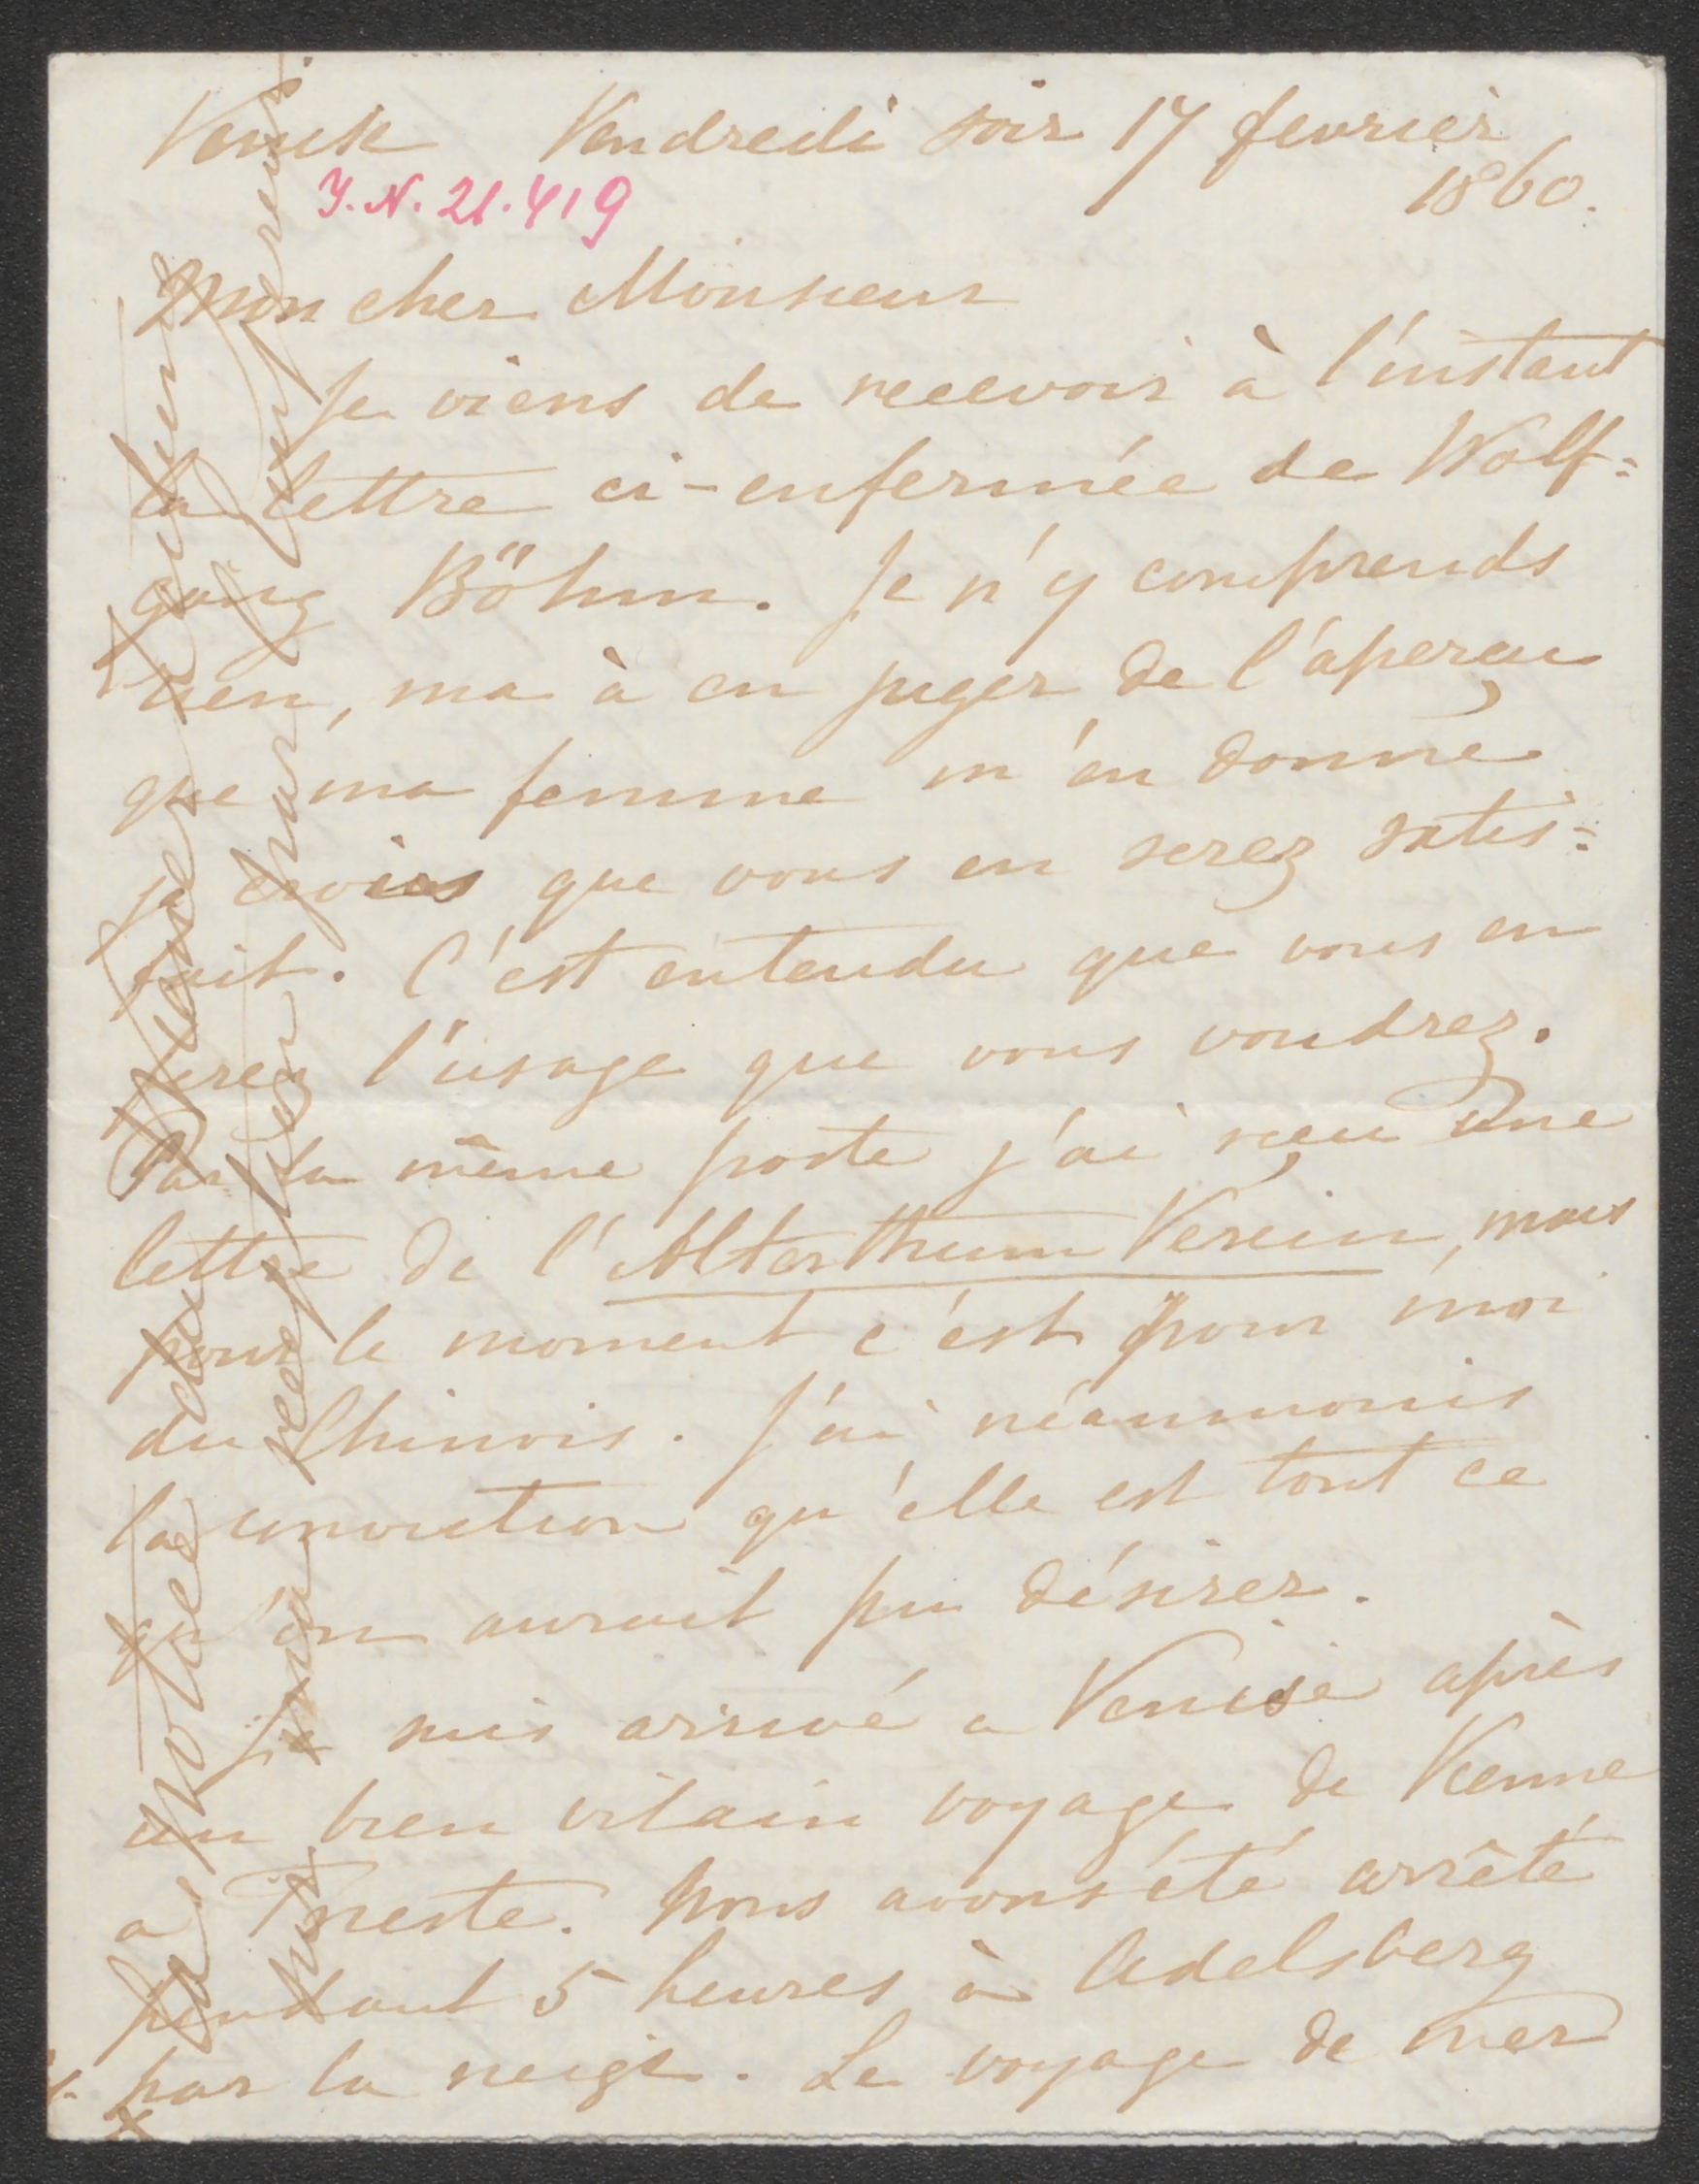 Venise Vendredi soir 17 fevrier
1860.
I.N. 21.419
Mon cher Monsieur
Je viens de recevoir à l'instant
la lettre ci-enfermée de Wolf=
gang Böhm. Je n'y comprends
rien, ma à en juger de l'aperçu
que ma femme m'en donne
je crois que vous en serez satis=
fait. C'est entendu que vous en
ferez l'usage que vous voudrez.
Par la même poste j'ai reçu une
lettre de l'Alterthum Verein, mais
pour le moment c'est pour moi
du Chinois. J'ai néanmonis
la conviction qu'elle est tout ce
qu'on auroit pu désirer.
Je suis arrivé a Venise après
un bien vilain voyage de Vienne
a Trieste. Nous avons été arrêté
pendant 5 heures à Adelsberg
par la neige. Le voyage de mer